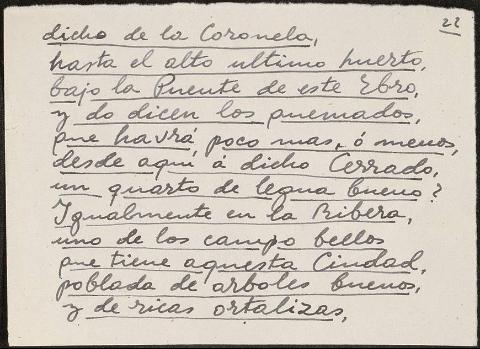 22
dicho de la Coronela,
hasta el alto ultimo huerto,
bajo la Puente de este Ebro,
y do dicen los quemados,
que havrá poco mas, ó menos,
desde aqui á dicho Cerrado,
un quarto de legua bueno?
Igualmente en la Ribera,
uno de los campo bellos
que tiene aquesta Ciudad,
poblada de arboles buenos,
y de ricas ortalizas,